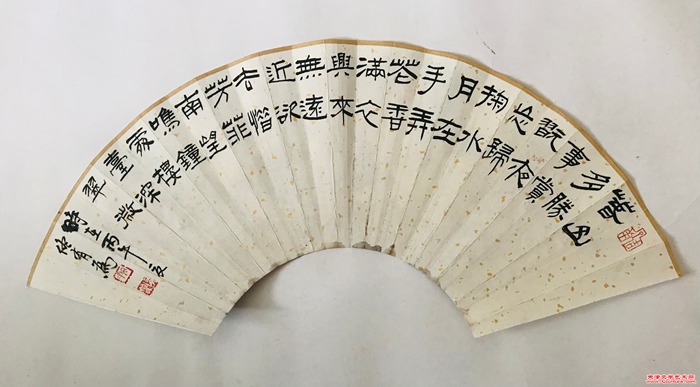 春山
多勝
事賞
翫夜
忘歸
掬水
月在
手弄
花香
滿衣
興來
無遠
近欲
去惜
芳菲
南望
鳴鐘
處樓
臺深
翠微